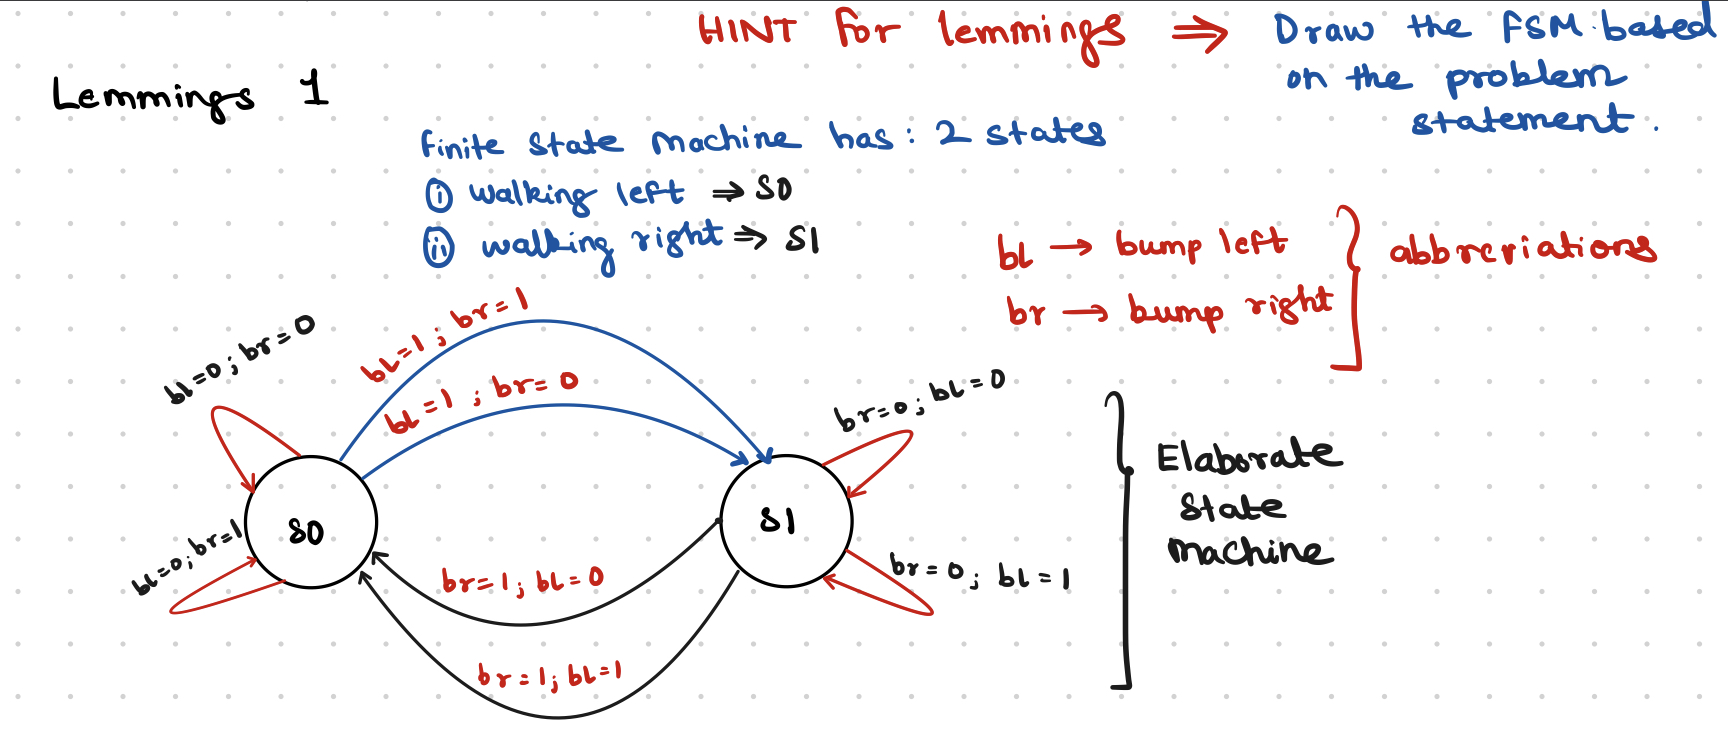 HINT for lemmings ⇒ Draw the FSM based
on the problem
statement.
Lemmings 1
finite state machine has: 2 states
(i) walking left ⇒ S0
(ii) walking right ⇒ S1
bL → bump left
br → bump right
abbreviations
bl=0; br=0
bL=1; br=1
bL=1; br=0
br=0; bL=0
S0
S1
bl=0; br=1
br=1; bL=0
br=0; bL=1
br=1; bL=1
Elaborate
state
machine